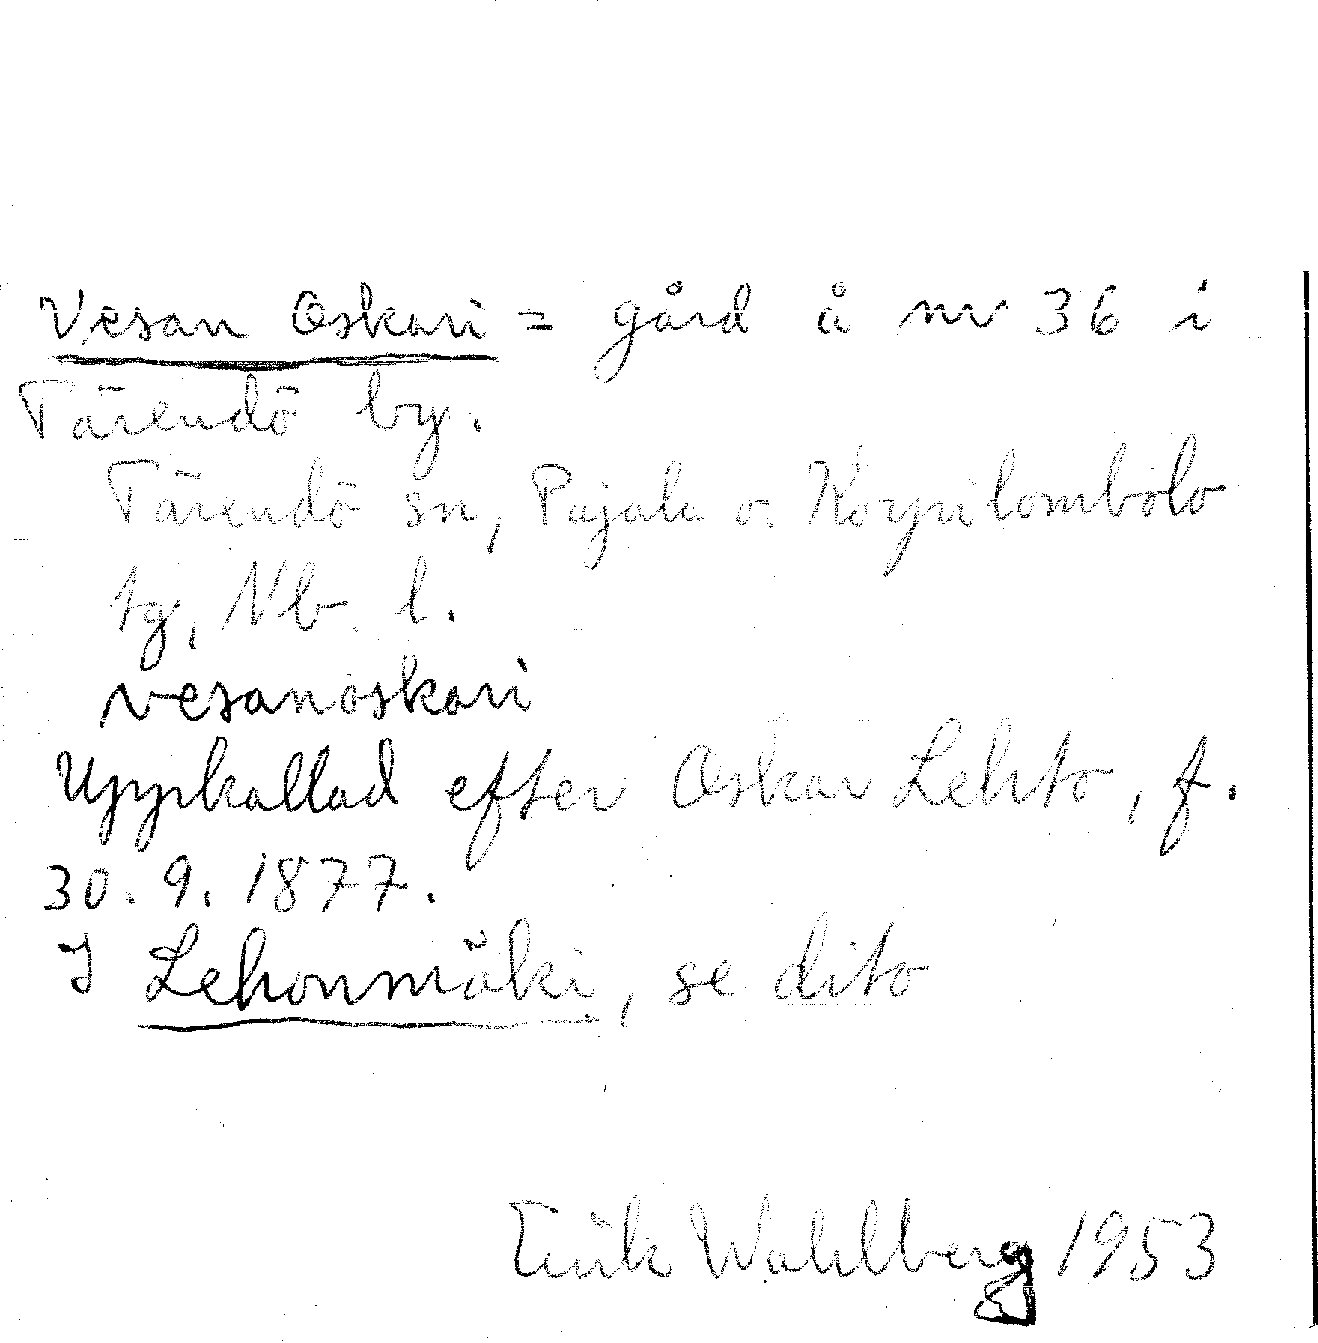 Vesan Oskari = gård å nr 36 i
Tärendö by.
Tärendö sn, Pajala o. Korpilombolo
tg, Nb. l.
vesanoskari
Uppkallad efter Oskar Lehto, f.
30. 9. 1877.
I Lehonmäki, se dito
Erik Wahlberg 1953